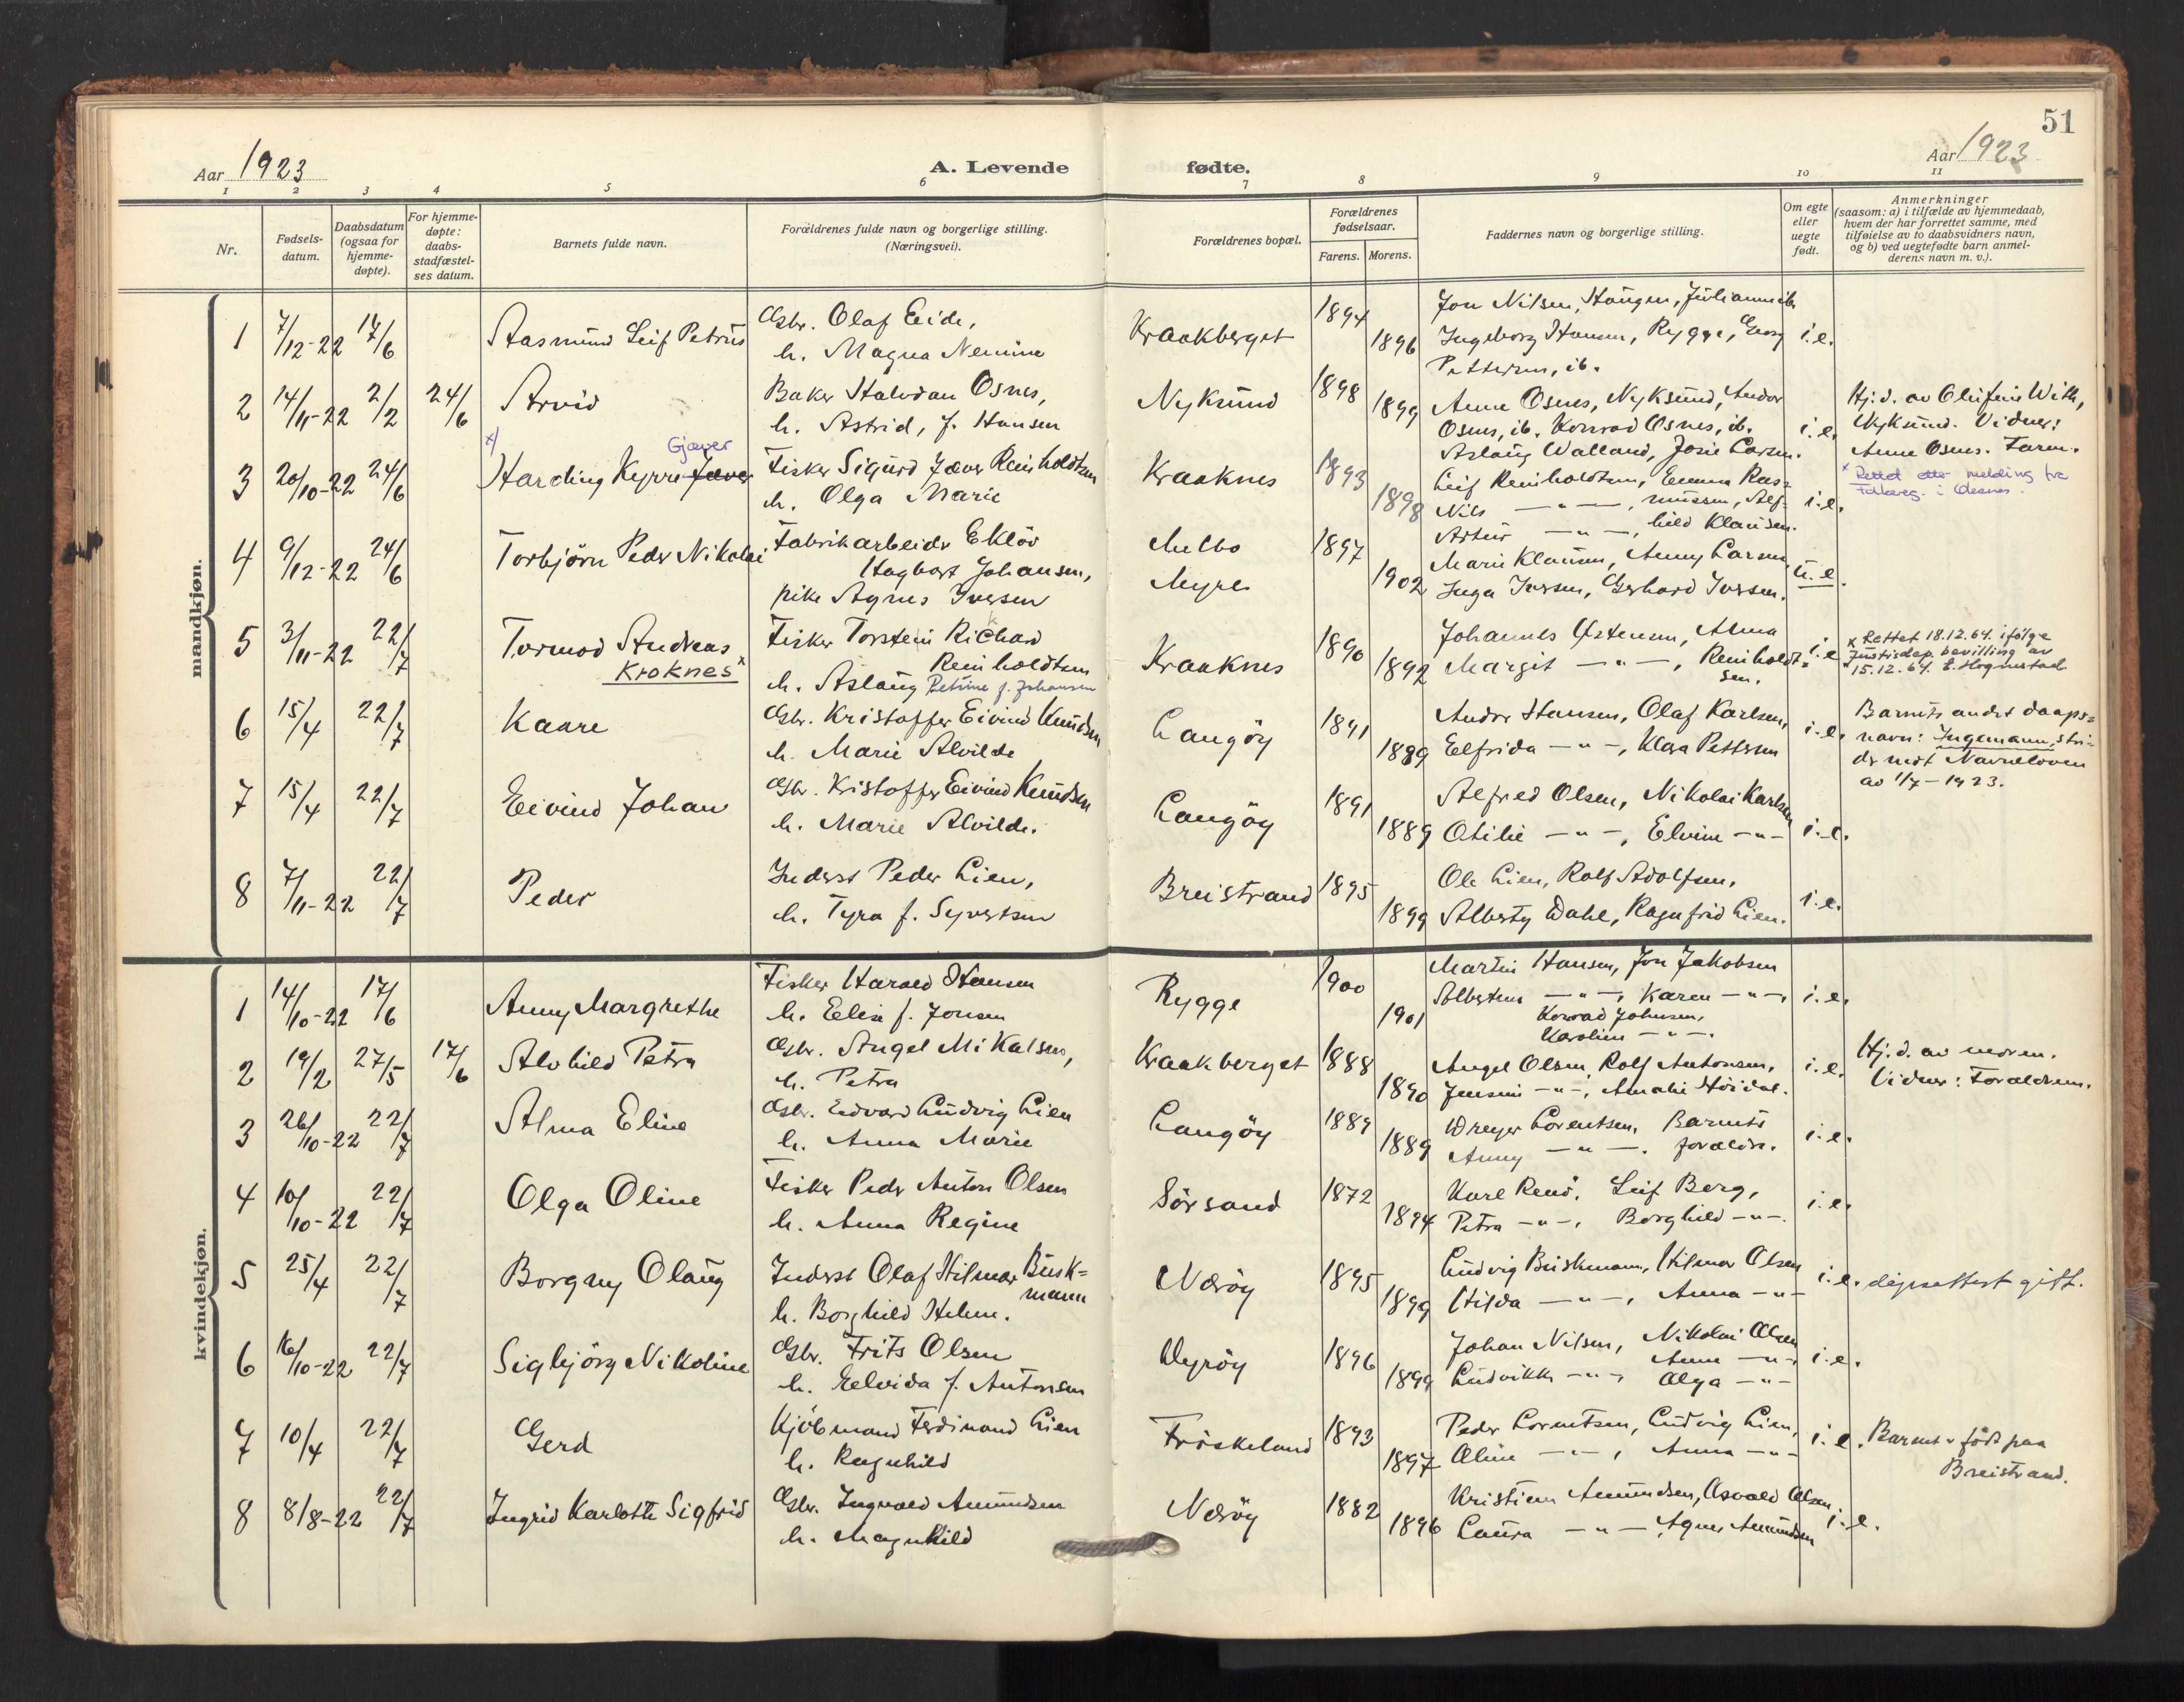 51
Aar 1923
A. Levende fødte.
Aar 1923
1 2 3 4 5 6 7 8 9 10 11
Nr.
Fødsels-
datum.
Daabsdatum
(ogsaa for
hjemme-
døpte).
For hjemme-
døpte:
daabs-
stadfæstel-
ses datum.
Barnets fulde navn.
Forældrenes fulde navn og borgerlige stilling.
(Næringsvei).
Forældrenes bopæl.
Forældrenes
fødselsaar.
Farens. Morens.
Faddernes navn og borgerlige stilling.
Om egte
eller
uegte
født.
Anmerkninger
(saasom: a) i tilfælde av hjemmedaab,
hvem der har forrettet samme, med
tilføielse av to daabsvidners navn,
og b) ved uegtefødte barn anmel-
derens navn m. v.).
mandkjøn.
1 7/12-22 17/6 Aasmund Leif Petrus
Gbr. Olaf Eide,
h. Magna Nemine
Kraakberget 1894 1896
Jon Nilsen, Haugen, Julianne ib
Ingeborg Hansen, Rygge, Georg
Pettersen, ib.
i.e.
2 14/11-22 2/2 24/6 Arvid
Baker Halvdan Osnes,
h. Astrid, f. Hansen
Nyksund 1898 1899
Anne Osnes, Nyksund, Andor
Osnes, ib. Konrad Osnes, ib.
Aslaug Walland, Josie Larsen.
i.e.
Hj.d. av Olufine With,
Nyksund. Vidner:
Anne Osnes. Faren.
3 20/10-22 24/6 x/ Harding Kyrre Jæver Gjæver
Fisker Sigurd Jæver Reinholdtsen
h. Olga Marie
Kraaknes 1893 1898
Leif Reinholdtsen, Emma Ras-
Nils — " —, mussen, Alf-
Artur — " —, hild Klausen.
i.e.
x Rettet etter melding fra
Folkereg. i Øksnes.
4 9/12-22 24/6 Torbjörn Peder Nikolai
Fabrikarbeider Eklöv
Hagbart Johansen,
pike Agnes Iversen
Melbo
Myre
1897 1902
Marie Klausen, Anny Larsen
Inga Iversen, Gerhard Iversen.
u.e.
5 3/11-22 22/7 Tormod Andreas
Kroknes x
Fisker Torstein Richard
Reinholdtsen
h. Aslaug Petrine f. Johansen
Kraaknes 1890 1892
Johannes Ystenem, Alma
Margit — " —, Reinholdt-
sen.
i.e.
x Rettet 18.12.64. ifølge
Justisdep. bevilling av
15.12.64.
6 15/4 22/7 Kaare
Gbr. Kristoffer Eivind Knudsen
h. Marie Alvilde
Langöy 1891 1889
Andor Hansen, Olaf Karlsen,
Elfrida — " —, Klara Pettersen
i.e.
Barnets andet daaps-
navn: Ingemann, stri-
der mot Navneloven
av 1/7-1923.
7 15/4 22/7 Eivind Johan
Gbr. Kristoffer Eivind Knudsen
h. Marie Alvilde.
Langöy 1891 1889
Alfred Olsen, Nikolai Karlsen
Otilie — " —, Elvine — " —
i.e.
8 7/11-22 22/7 Peder
Inderst Peder Lien,
h. Tyra f. Syvertsen
Breistrand 1895 1899
Ole Lien, Rolf Adolfsen,
Alberty Dahl, Ragnfrid Lien.
i.e.
kvindekjøn.
1 14/10-22 17/6 Anny Margrethe
Fisker Harald Hansen
h. Elise f. Jonsen
Rygge 1900 1901
Martin Hansen, Jon Jakobsen
Albertine — " —, Karen — " —,
Konrad Johnsen,
Karoline — " —.
i.e.
2 19/2 27/5 17/6 Alvhild Petra
Gbr. Angel Mikalsen,
h. Petra
Kraakberget 1888 1890
Angel Olsen, Rolf Antonsen,
Jensine — " —, Amalie Höidal.
i.e.
Hj.d. av moren.
Vidner: Forældrene.
3 26/10-22 22/7 Alma Eline
Gbr. Edvard Ludvig Lien
h. Anna Marie
Langöy 1889 1889
Dreyer Lorentsen, Barnets
Anny — " —. forældre.
i.e.
4 10/10-22 22/7 Olga Oline
Fisker Peder Anton Olsen
h. Anna Regine
Sörsand 1872 1894
Karl Renö, Leif Berg,
Petra — " —, Borghild — " —.
i.e.
5 25/4 22/7 Borgny Olaug
Inderst Olaf Hilmar Busk-
mann
h. Borghild Helene.
Næröy 1895 1899
Ludvig Buskmann, Hilmar Olsen
Hilda — " —, Anna — " —
i.e.
dåpsattest gitt.
6 16/10-22 22/7 Sigbjörg Nikoline
Gbr. Frits Olsen
h. Elvida f. Antonsen
Dyröy 1896 1899
Johan Nilsen, Nikolai Olsen
Ludvikke — " —, Anne — " —,
Olga — " —
i.e.
7 10/4 22/7 Gerd
Kjöbmand Ferdinand Lien
h. Ragnhild
Fröskeland 1893 1897
Peder Lorentsen, Ludvig Lien,
Oline — " —, Anna — " —
i.e.
Barnet er född paa
Breistrand.
8 8/8-22 22/7 Ingrid Karlotte Sigfrid
Gbr. Ingvald Amundsen
h. Magnhild
Næröy 1882 1896
Kristian Amundsen, Osvald Olsen,
Laura — " —, Agnes Amundsen
i.e.